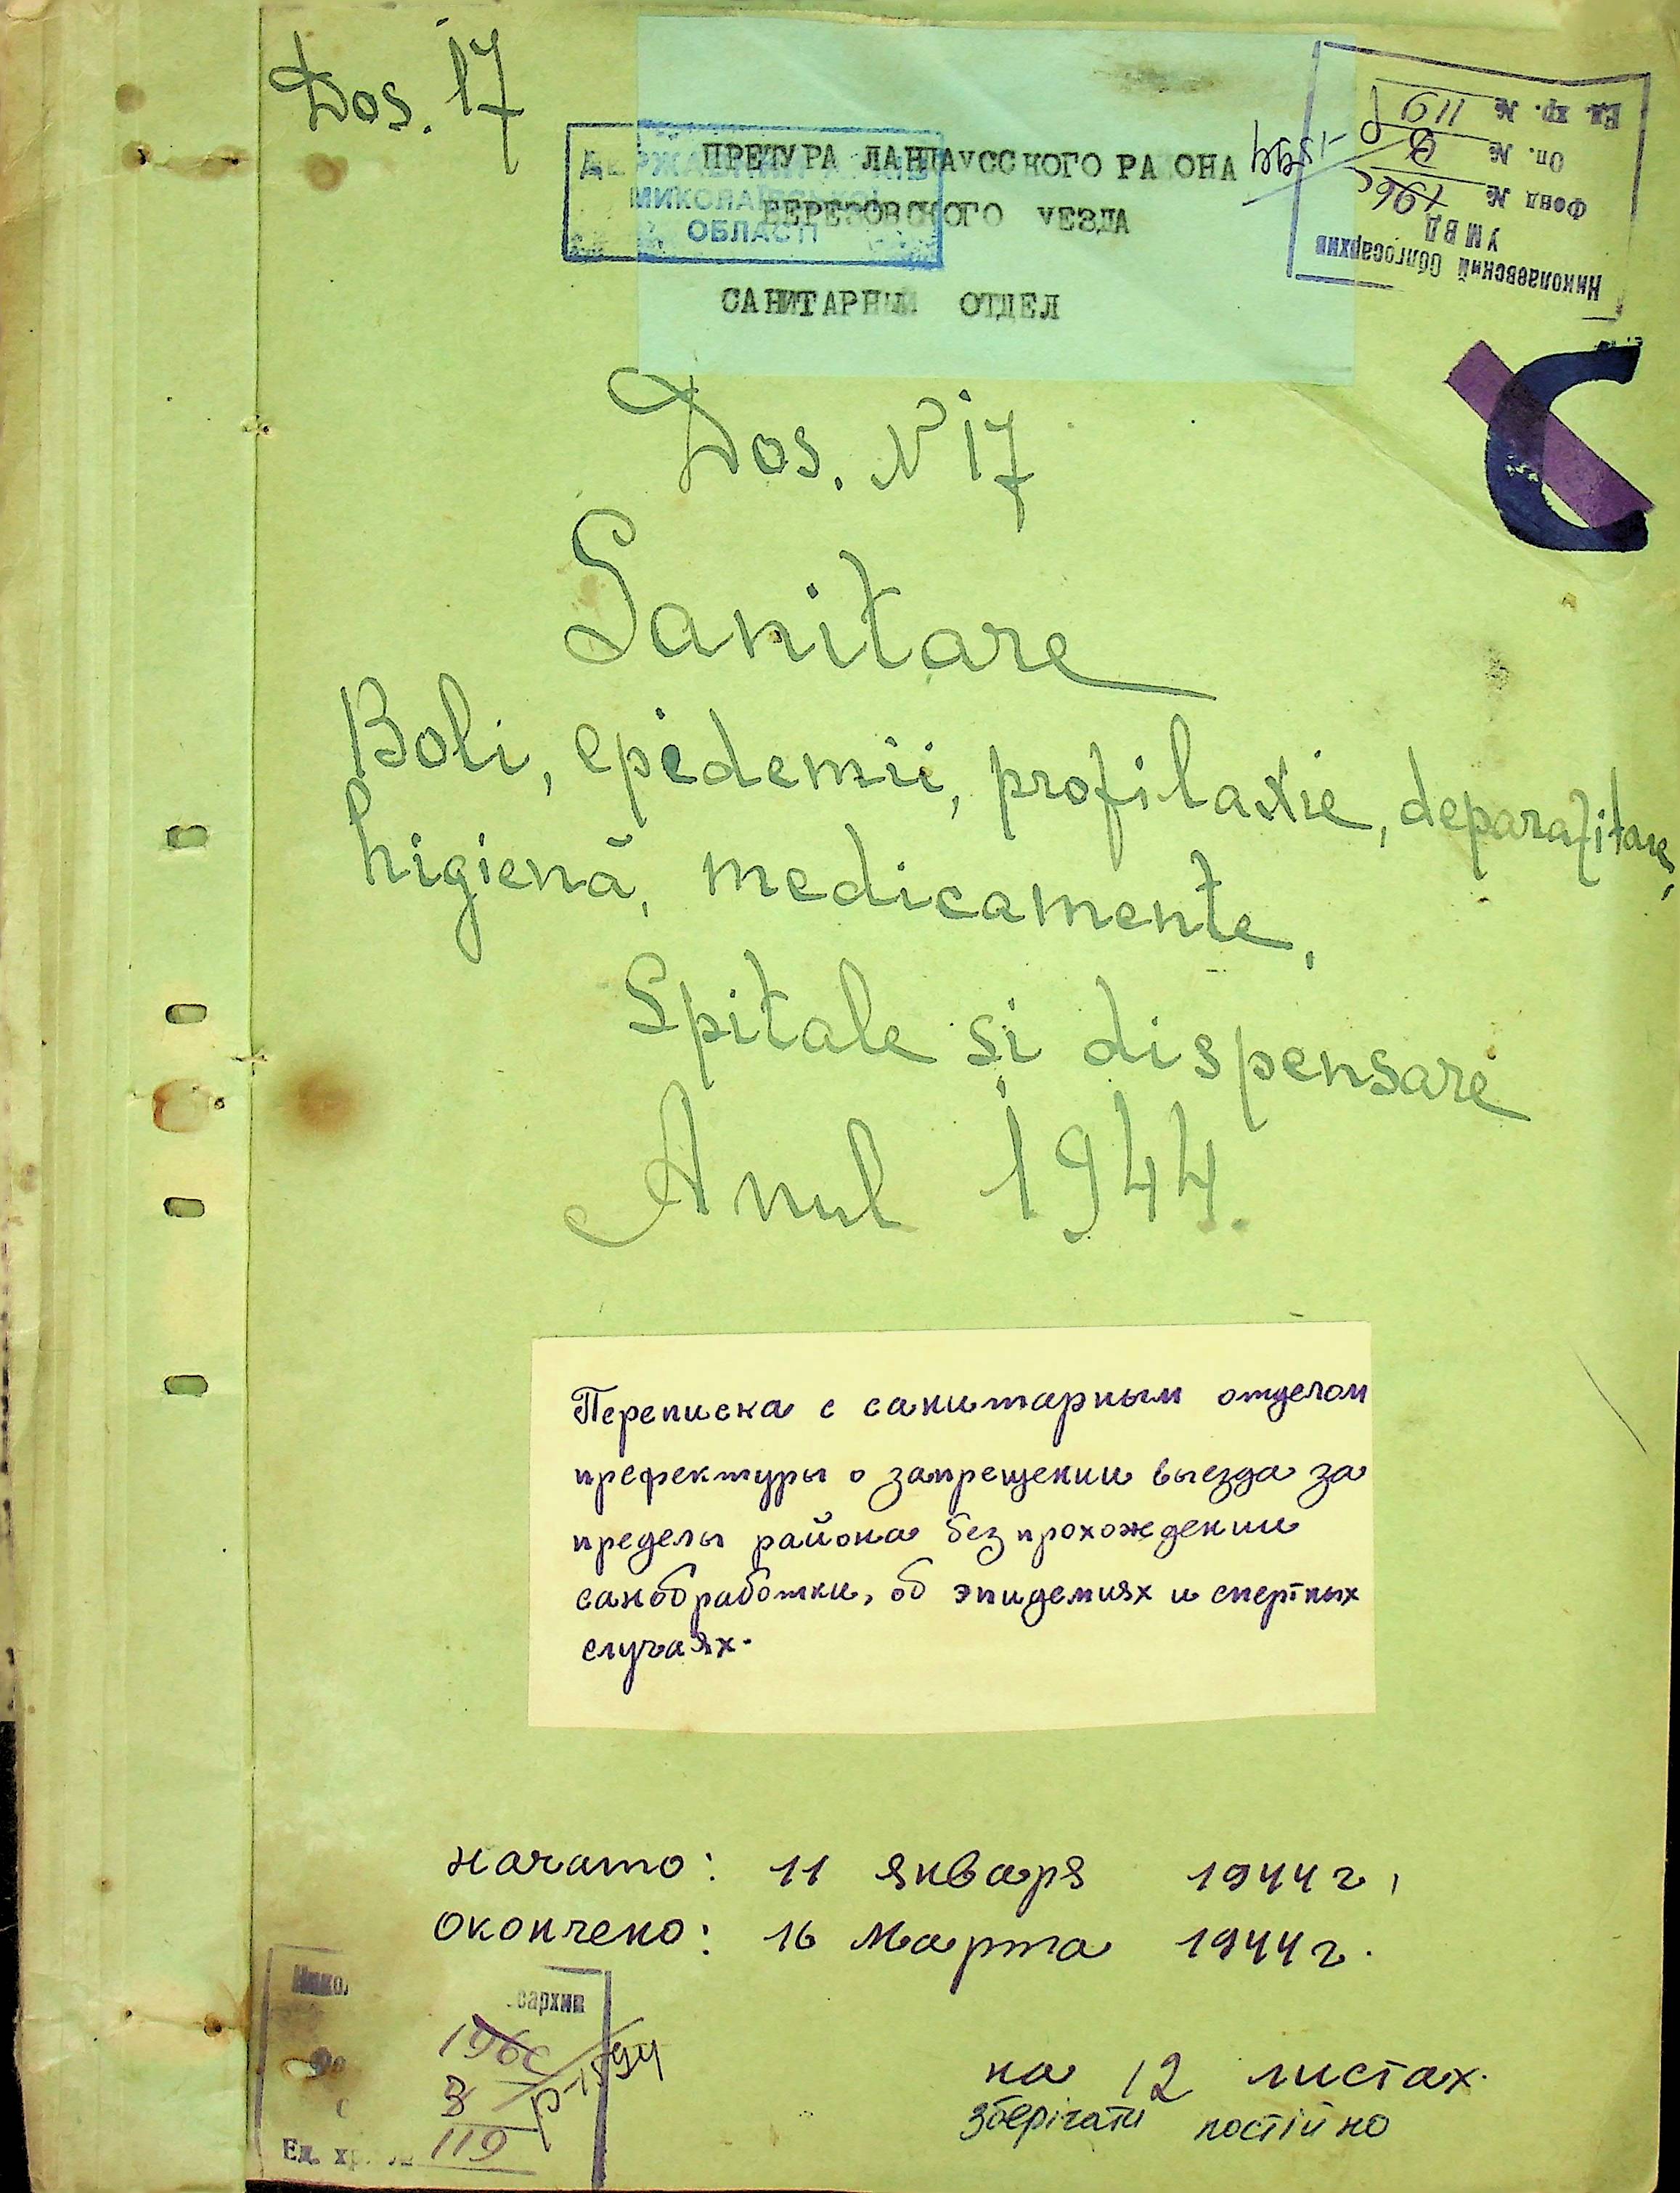 Dos. 17
ПРЕТУРА ЛАНДАУССКОГО РА ОНА
БЕРЕЗОВСКОГО УЕЗДА
САНИТАРНЫЙ ОТДЕЛ
МИКОЛАЇВСЬКОЇ
ОБЛАСТІ
Николаевский Облгосархив
УМВД
Фонд № 196с
Р-1594
Оп. № 3
Ед. хр. № 119
С
Dos. N 17
Sanitare
Boli, epidemii, profilaxie, deparazitare,
higienă, medicamente,
Spitale și dispensare
Anul 1944.
Переписка с санитарным отделом
префектуры о запрещении выезда за
пределы района без прохождении
санобработки, об эпидемиях и смертных
случаях.
Начато: 11 января 1944 г,
Окончено: 16 марта 1944 г.
сархив
196с
Р-1594
3
Ед. хр. 119
на 12 листах.
зберігати постійно